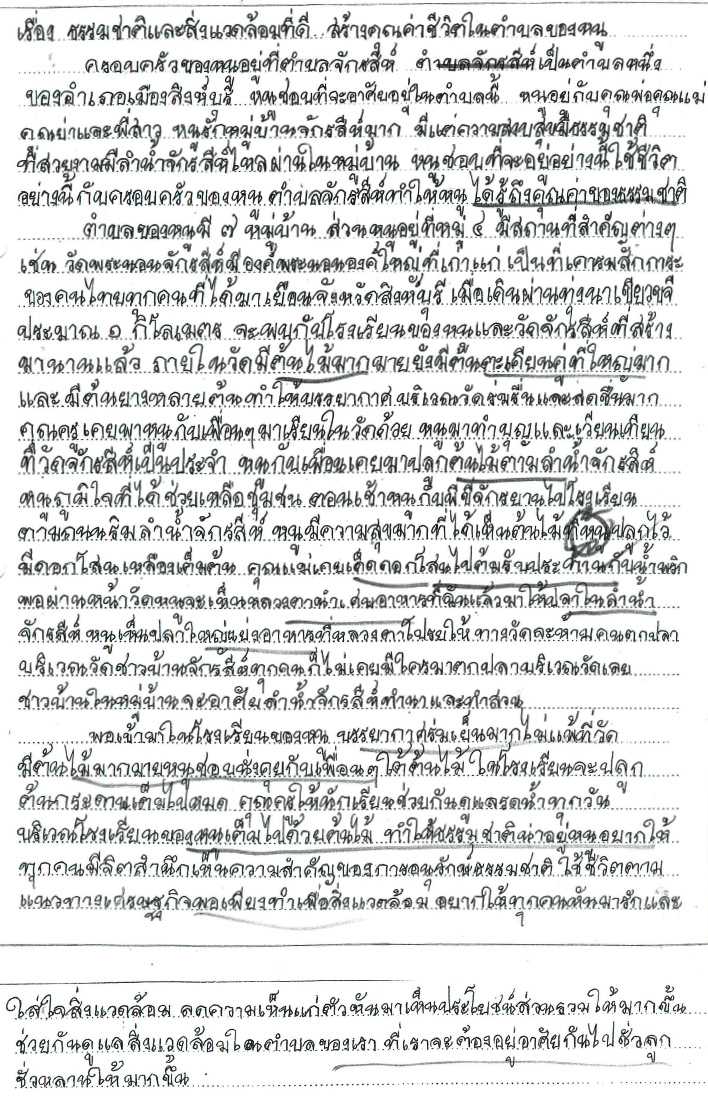 เรื่อง ธรรมชาติและสิ่งแวดล้อมที่ดี สร้างคุณค่าชีวิตในตำบลของหนู
ครอบครัวของหนูอยู่ที่ตำบลจักรสีห์ ตำบลจักรสีห์เป็นตำบลหนึ่ง
ของอำเภอเมืองสิงห์บุรี หนูชอบที่จะอาศัยอยู่ในตำบลนี้ หนูอยู่กับคุณพ่อคุณแม่
คุณย่าและพี่สาว หนูรักหมู่บ้านจักรสีห์มาก มีแต่ความสงบสุขมีธรรมชาติ
ที่สวยงามมีลำน้ำจักรสีห์ไหลผ่านในหมู่บ้าน หนูชอบที่จะอยู่อย่างนี้ใช้ชีวิต
อย่างนี้กับครอบครัวของหนู ตำบลจักรสีห์ทำให้หนู ได้รู้ถึงคุณค่าของธรรมชาติ
ตำบลของหนูมี ๗ หมู่บ้าน ส่วนหนูอยู่ที่หมู่ ๔ มีสถานที่สำคัญต่างๆ
เช่น วัดพระนอนจักรสีห์มีองค์พระนอนองค์ใหญ่ที่เก่าแก่ เป็นที่เคารพสักการะ
ของคนไทยทุกคนที่ได้มาเยือนจังหวัดสิงห์บุรี เมื่อเดินผ่านทุ่งนาเขียวขจี
ประมาณ ๑ กิโลเมตร จะพบกับโรงเรียนของหนูและวัดจักรสีห์ที่สร้าง
มานานแล้ว ภายในวัดมีต้นไม้มากมายยังมีต้นตะเคียนคู่ที่ใหญ่มาก
และ มีต้นยางหลายต้นทำให้บรรยากาศบริเวณวัดร่มรื่นและสดชื่นมาก
คุณครูเคยพาหนูกับเพื่อนๆมาเรียนในวัดด้วย หนูมาทำบุญและเวียนเทียน
ที่วัดจักรสีห์เป็นประจำ หนูกับเพื่อนเคยมาปลูกต้นไม้ตามลำน้ำจักรสีห์
หนูภูมิใจที่ได้ช่วยเหลือชุมชน ตอนเช้าหนูกับพี่ขี่จักรยานไปโรงเรียน
ตามถนนริมลำน้ำจักรสีห์ หนูมีความสุขมากที่ได้เห็นต้นไม้ที่หนูปลูกไว้
มีดอกโสนเหลืองเต็มต้น คุณแม่เคยเด็ดดอกโสนไปต้มรับประทานกับน้ำพริก
พอผ่านหน้าวัดหนูจะเห็นหลวงตานำเศษอาหารที่ฉันแล้วมาให้ปลาในลำน้ำ
จักรสีห์ หนูเห็นปลาใหญ่แย่งอาหารที่หลวงตาโปรยให้ ทางวัดจะห้ามคนตกปลา
บริเวณวัดชาวบ้านจักรสีห์ทุกคนก็ไม่เคยมีใครมาตกปลาบริเวณวัดเลย
ชาวบ้านในหมู่บ้านจะอาศัยลำน้ำจักรสีห์ทำนาและทำสวน
พอเข้ามาในโรงเรียนของหนู บรรยากาศร่มเย็นมากไม่แพ้ที่วัด
มีต้นไม้มากมายหนูชอบนั่งคุยกับเพื่อนๆใต้ต้นไม้ ในโรงเรียนจะปลูก
ต้นกระดานเต็มไปหมด คุณครูให้นักเรียนช่วยกันดูแลรดน้ำทุกวัน
บริเวณโรงเรียนของหนูเต็มไปด้วยต้นไม้ ทำให้ธรรมชาติน่าอยู่หนูอยากให้
ทุกคนมีจิตสำนึกเห็นความสำคัญของการอนุรักษ์ธรรมชาติ ใช้ชีวิตตาม
แนวทางเศรษฐกิจพอเพียงทำเพื่อสิ่งแวดล้อม อยากให้ทุกคนหันมารักและ
ใส่ใจสิ่งแวดล้อม ลดความเห็นแก่ตัวหันมาเห็นประโยชน์ส่วนรวมให้มากขึ้น
ช่วยกันดูแลสิ่งแวดล้อมในตำบลของเรา ที่เราจะต้องอยู่อาศัยกันไปชั่วลูก
ชั่วหลานให้มากขึ้น